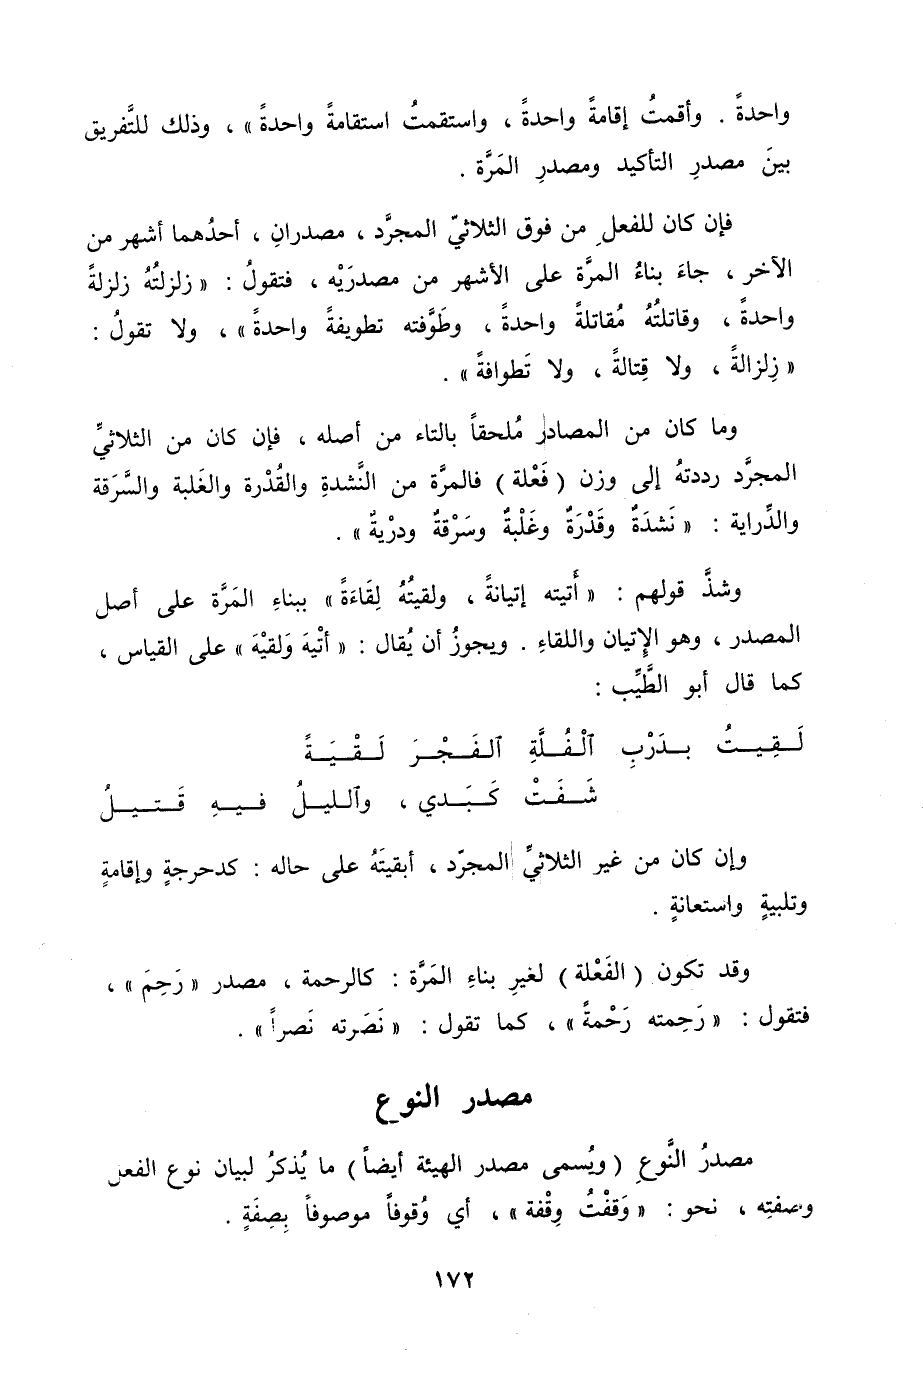 واحدةً . وأقمتُ إقامةً واحدةً ، واستقمتُ استقامةً واحدةً » ، وذلك للتَّفريق
بينَ مصدرِ التأكيد ومصدرِ المَرَّة .
فإن كان للفعلِ من فوق الثلاثيّ المجرَّد ، مصدرانِ ، أحدُهما أشهر من
الآخر ، جاءَ بناءُ المرَّة على الأشهر من مصدرَيْه ، فتقولُ : « زلزلتُهُ زلزلةً
واحدةً ، وقاتلتُهُ مُقاتلةً واحدةً ، وطَوَّفته تطويفةً واحدةً » ، ولا تقولُ :
« زِلزالةً ، ولا قِتالةً ، ولا تَطوافةً » .
وما كان من المصادر مُلحقاً بالتاء من أصله ، فإن كان من الثلاثيِّ
المجرَّد رددتهُ إلى وزن ( فَعْلة ) فالمرَّة من النَّشدةِ والقُدْرة والغَلبة والسَّرَقة
والدِّراية : « نَشدَةٌ وقَدْرَةٌ وغَلْبةٌ وسَرْقةٌ ودرْيةٌ » .
وشذَّ قولهم : « أَتيته إتيانةً ، ولقيتُهُ لِقَاءَةً » ببناءِ المَرَّة على أصل
المصدر ، وهو الإتيان واللقاءِ . ويجوزُ أن يُقال : « أتْيةَ وَلقيْةَ » على القياس ،
كما قال أبو الطَّيِّب :
لَـقِيـتُ بـدَرْبِ ٱلْـقُـلَّةِ ٱلـفَـجْـرَ لَـقْـيَـةً
شَـفَـتْ كَـبَـدي ، وٱلـليـلُ فـيـهِ قَـتـيـلُ
وإن كان من غير الثلاثيِّ المجرّد ، أبقيتَهُ على حاله : كدحرجةٍ وإقامةٍ
وتلبيةٍ واستعانةٍ .
وقد تكون ( الفَعْلة ) لغيرِ بناءِ المَرَّة : كالرحمة ، مصدر « رَحِمَ » ،
فتقول : « رَحِمته رَحْمةً » ، كما تقول : « نَصَرته نَصراً » .
مصدر النوع
مصدرُ النَّوعِ ( ويُسمى مصدر الهيئة أيضاً ) ما يُذكرُ لبيان نوع الفعل
وصفتِه ، نحو : « وَقفْتُ وِقْفة » ، أي وُقوفاً موصوفاً بِصِفَةٍ .
١٧٢